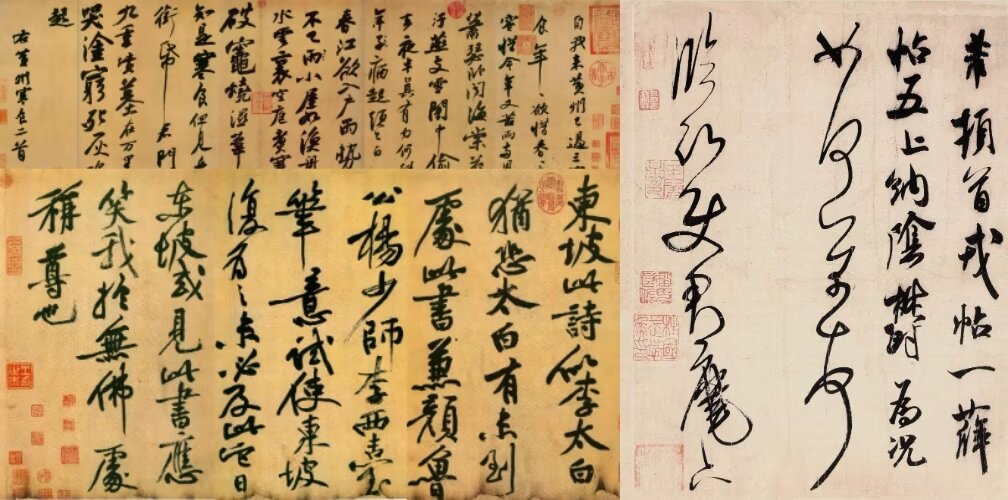 自我来黄州已過三
食年〻欲惜春
容惜今年又苦雨兩月
蕭瑟卧聞海棠花
汙燕支雪闇中偷
夫夜半真有力何殊
年子病起頭已白
春江欲入户雨勢
不已雨小屋如漁舟
水雲裏空庖煮寒
破竈燒濕葦
知是寒食但見烏
銜帋君門
九重墳墓在万里
哭塗窮死灰吹
起
右黄州寒食二首
東坡此詩似李太白
猶恐太白有未到
處此書兼顏魯
公楊少師李西臺
筆意試使東坡
復為之未必及此它日
東坡或見此書應
笑我於無佛處
稱尊也
芾頓首戎帖一薛
帖五上納陰欝為況
如何芾頓首
使君麾下